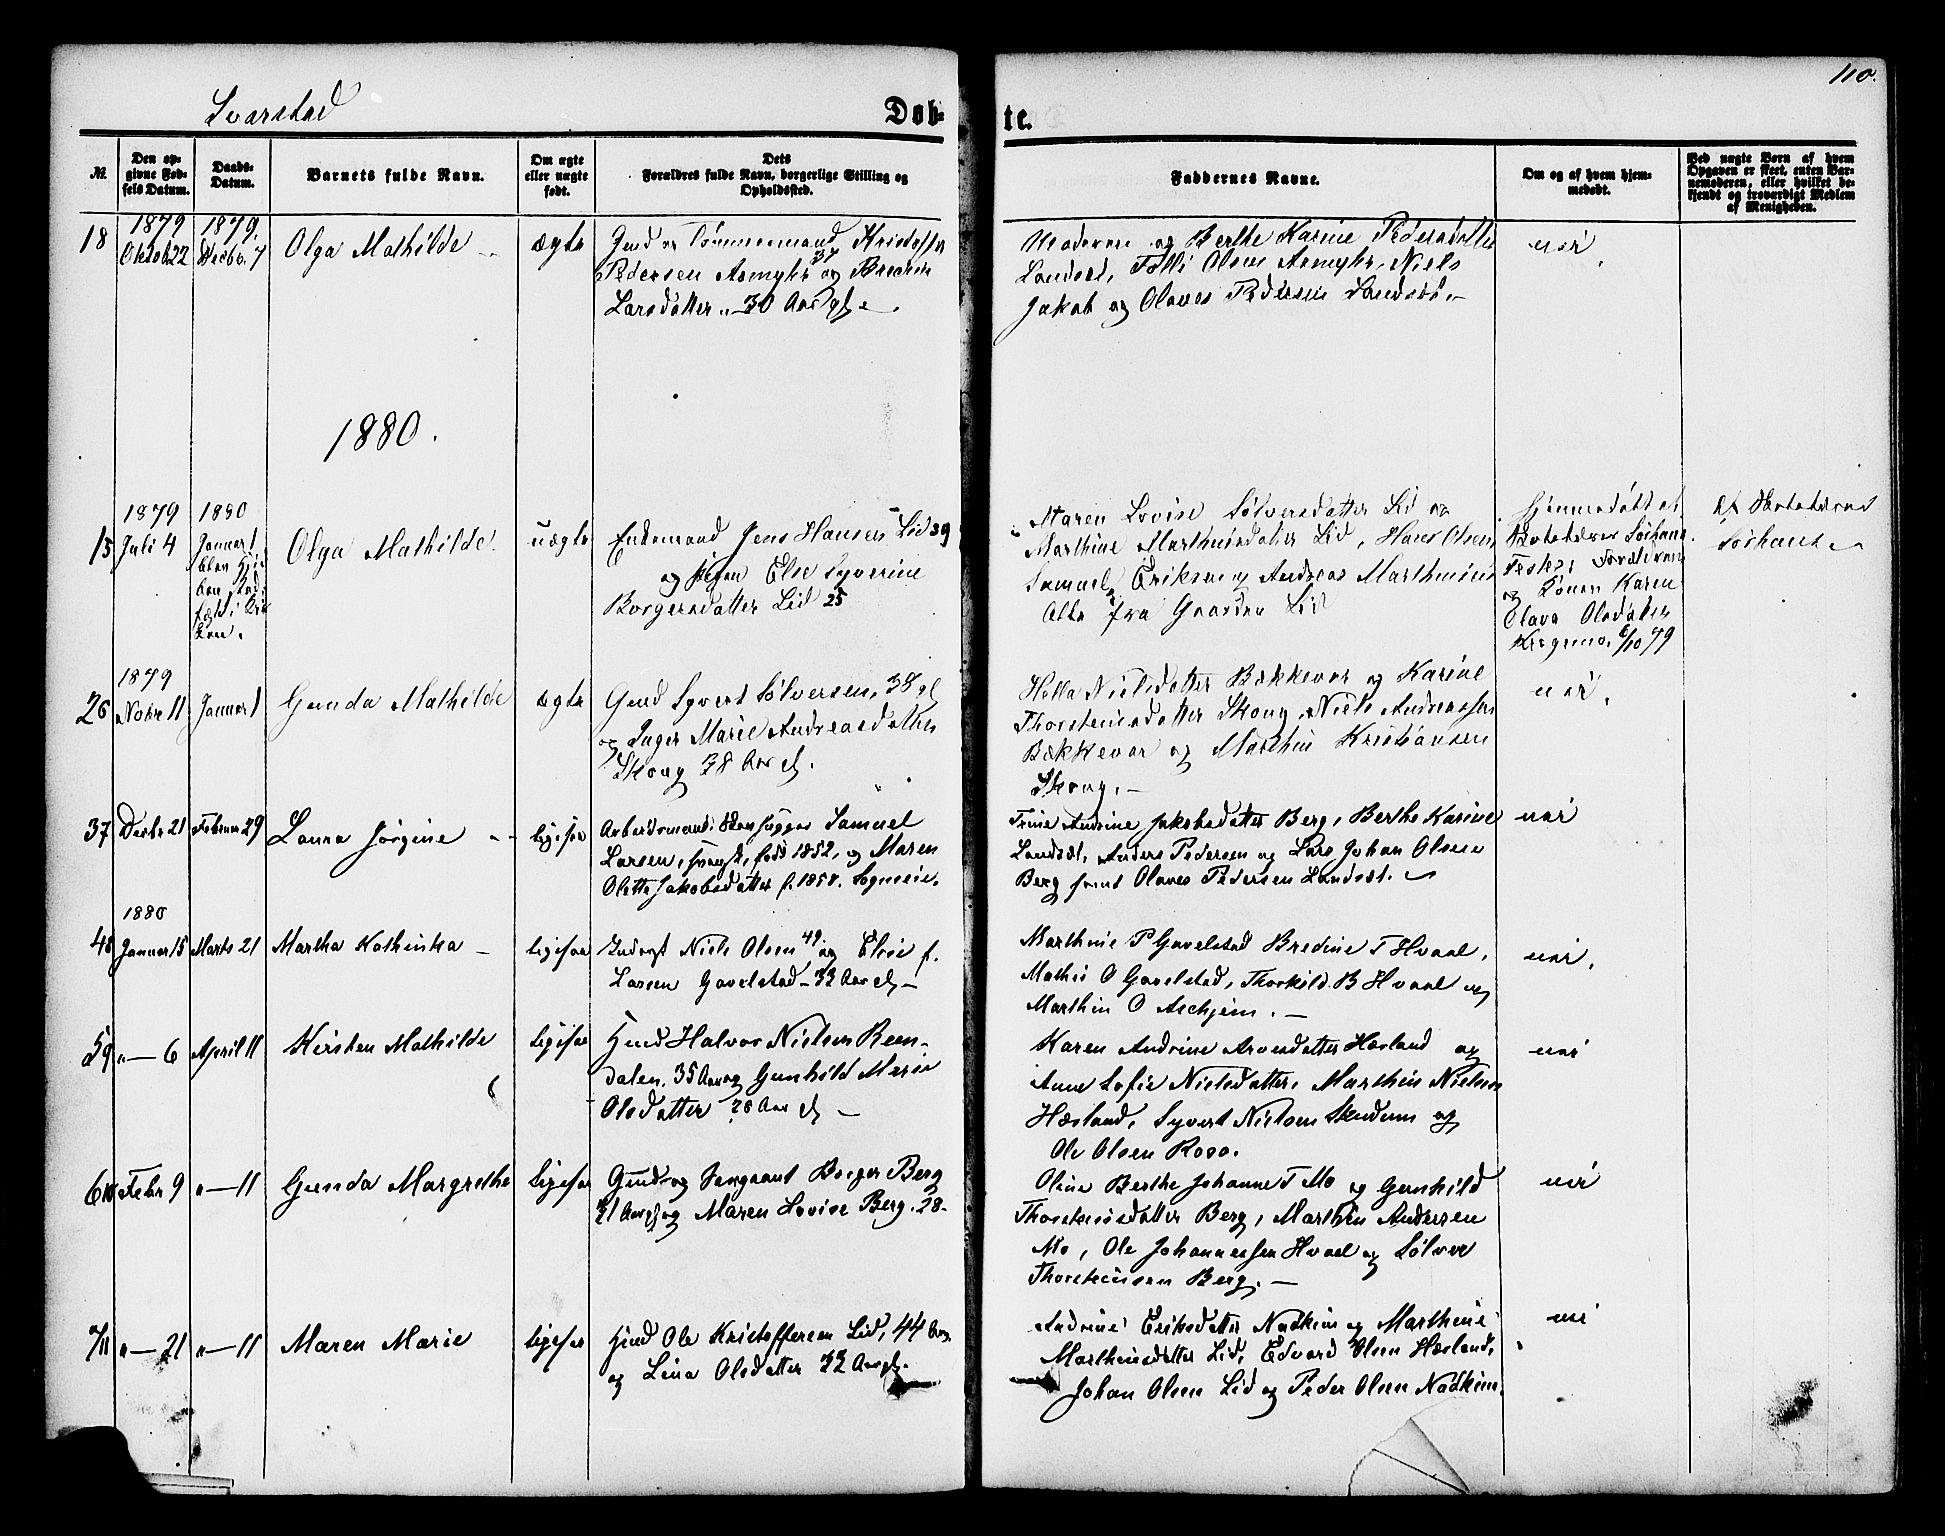 110.
Svarstad
Døb-
te.
№.
Den op-
givne Fød-
sels Datum.
Daabs-
Datum.
Barnets fulde Navn.
Om ægte
eller uægte
født.
Dets
Forældres fulde Navn, borgerlige Stilling og
Opholdssted.
Faddernes Navne.
Om og af hvem hjem-
medøbt.
Ved uægte Børn af hvem
Opgaven er skeet, enten Bar-
nemoderen, eller hvilket be-
kjendt og troværdigt Medlem
af Menigheden.
18
1879
Oktob 22
1879.
Decbr. 7
Olga Mathilde
ægte
Gmd og Tømmermand Kristoffer
Pedersen Asmyhr 37 og
Larsdatter 30 Aar gl.
og Berthe Karine Pedersdatter
Landsæt, Olsen Asmyhr, Niels
Jakob og Olaves Pedersen Landsæt.
nei
1880.
15
1879
Juli 4
1880
Januar 1
Olga Mathilde.
uægte
Enkemand Jens Hansen Lid 39
og Pigen Else Syverine
Borgersdatter Lid 25
Maren Lovise Sølversdatter Lid og
Marthine Marthinsdatter Lid, Hans Olsen
Samuel Eriksen og Andreas Marthinsen
Alle fra Gaarden Lid
Hjemmedøbt af
og Konen Karen
Olava Olsdatter
6/10 79
Af
26
1879
Novbr 11
Januar 1
Gunda Mathilde
ægte
Gmd Syvert Sølversen, 38 gl
og Inger Marie Andreasdatter
Skoug 38 Aar gl.
Helle Nielsdatter Bækkevar og Karine
Thorsteinsdatter Skoug, Niels Andreassen
Bækkevar og Marthin Kristiansen
Skoug.
nei.
37
Decbr 21
Februar 29
Laura Jørgine
ligesaa
Arbeidsmand, Samuel
Larsen, født 1852, og Maren
Olette Jakobsdatter f. 185
Trine Andrine Jakobsdatter Berg, Berthe Karine
Landsæt, Anders Pedersen og Lars Johan Olsen
Berg samt Olaves Pedersen Landsæt.
nei
48
1880
Januar 15
Marts 21
Martha Kathinka
ligesaa
Niels Olsen 49 og
Larsen Gavelstad 33 Aar gl.
Marthine P Gavelstad Bredine T Hvaal,
Mathis O Gavelstad, Thorkild B Hvaal og
Marthin O Aschjem.
nei.
59
"— 6
April 11
Kirsten Mathilde
ligesaa
Gmd Halvor Nielsen Rem-
dalen, 35 Aar og Gunhild Marie
Olsdatter 26 Aar gl
Karen Andrine Arvesdatter Hæsland og
Anne Sofie Nielsdatter, Marthin Nielsen
Hæsland, Syvert Nielsen og
Ole Olsen
nei
Febr 9
"— 11
Gunda Margrethe
ligesaa
Gmd og Sergeant Borger Berg
31 Aar gl og Maren Lovise Berg. 28
Oline Berthe Johanne T Mo og Gunhild
Thorsteinsdatter Berg, Marthin Andersen
Mo, Ole Johannessen Hvaal og Sølver
Thorsteinsen Berg.
nei
"— 21
"— 11
Maren Marie
ligesaa
Gmd Ole Kristoffersen Lid, 44 Aar
og Lina Olsdatter 33 Aar gl.
Andrine Eriksdatter Nadkim og Marthine
Marthinsdatter Lid, Edvard Olsen Hæsland,
Johan Olsen Lid og Peder Olsen Nadkim.
nei